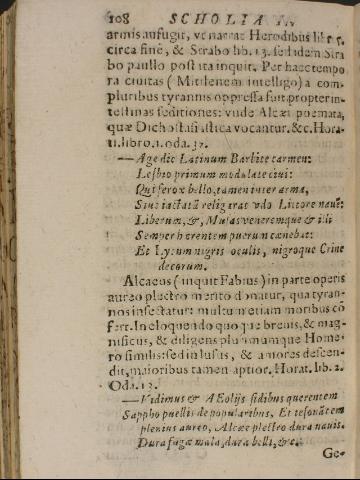 108 SCHOLIA IN.
armis aufugit, vt narrat Herodibus lib. 5.
circa finē, & Strabo lib. 13. sed idem Stra
bo paullo post ita inquit. Per hæc tempo
ra ciuitas ( Mitilenem intelligo) a com-
pluribus tyrannis oppressa fuit propter in-
testinas seditiones: vnde Alcæi poemata,
quæ Dichostasiastica vocantur. &c. Hora-
ti. libro. 1. oda. 32.
— Age dic Latinum Barbite carmen:
Lesbio primum modulate ciui:
Qui ferox bello, tamen inter arma,
Siue iactatā relig̃rat vdo Littore nauē:
Liberum, &, Musas veneremque & illi
Semper hęrentem puerum canebat:
Et Lycum nigris oculis, nigroque Crine
decorum.
Alcaeus ( inquit Fabius ) in parte operis
aureo plectro merito donatur, qua tyran-
nos insectatur: multum etiam moribus cō
fert. In eloquendo quoque breuis, & mag-
nificus, & diligens plurimumque Home-
ro similis: sed in lusus, & amores descen-
dit, maioribus tamen aptior. Horat. lib. 2.
Oda. 13.
— Vidimus & AEolijs fidibus querentem
Sappho puellis de popularibus, Et te sonātem
plenius aureo, Alcæe plectro dura nauis.
Dura fugæ mala, dura belli, &c.
Ge-